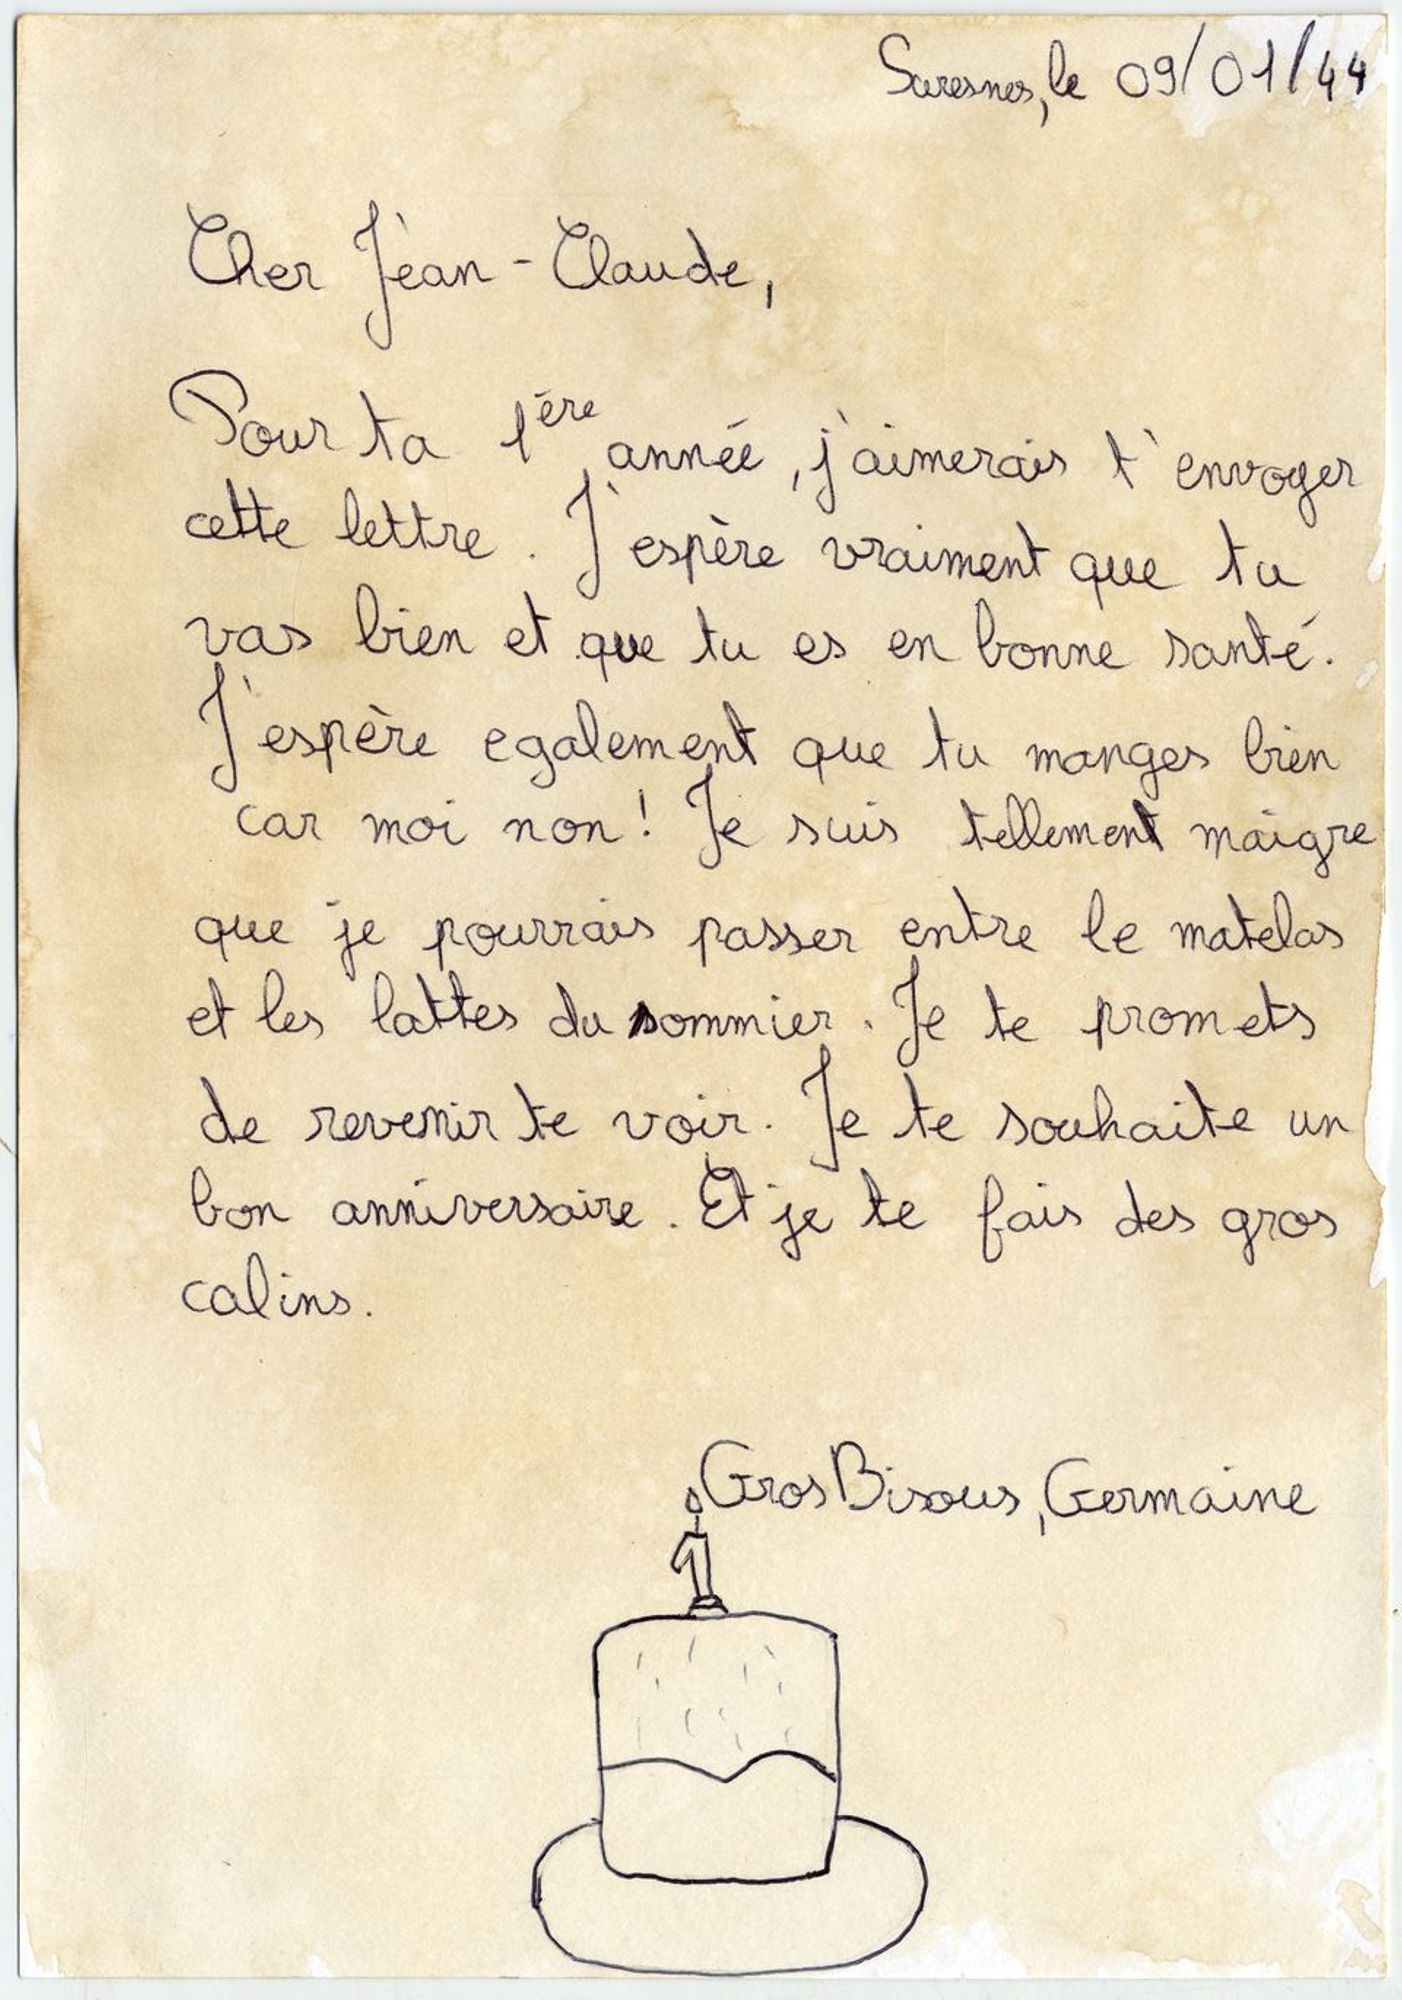 Suresnes, le 09/01/44
Cher Jean-Claude,
Pour ta 1ère année, j'aimerais t'envoyer
cette lettre. J'espère vraiment que tu
vas bien et que tu es en bonne santé.
J'espère egalement que tu manges bien
car moi non! Je suis tellement maigre
que je pourrais passer entre le matelas
et les lattes du sommier. Je te promets
de revenir te voir. Je te souhaite un
bon anniversaire. Et je te fais des gros
calins.
Gros Bisous, Germaine
1